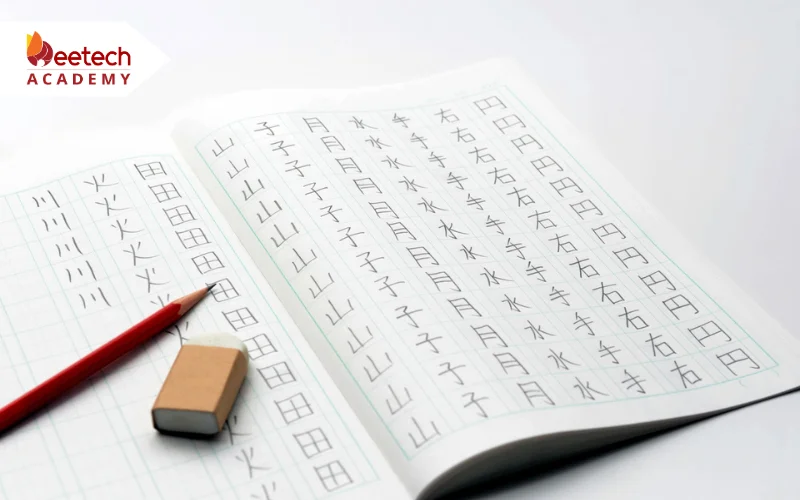 Beetech
ACADEMY
円円円円円円円円円円円円
右右右右右右右右右右右右
手手手手手手手手手手手手
水水水水水水水水水水水水
月月月月月月月月月月月月
子子子子子子子子子子子子
山山山山山山山山山山山山
田田田田田田田田田田田田
火火火火火火火火火火
川川川川川